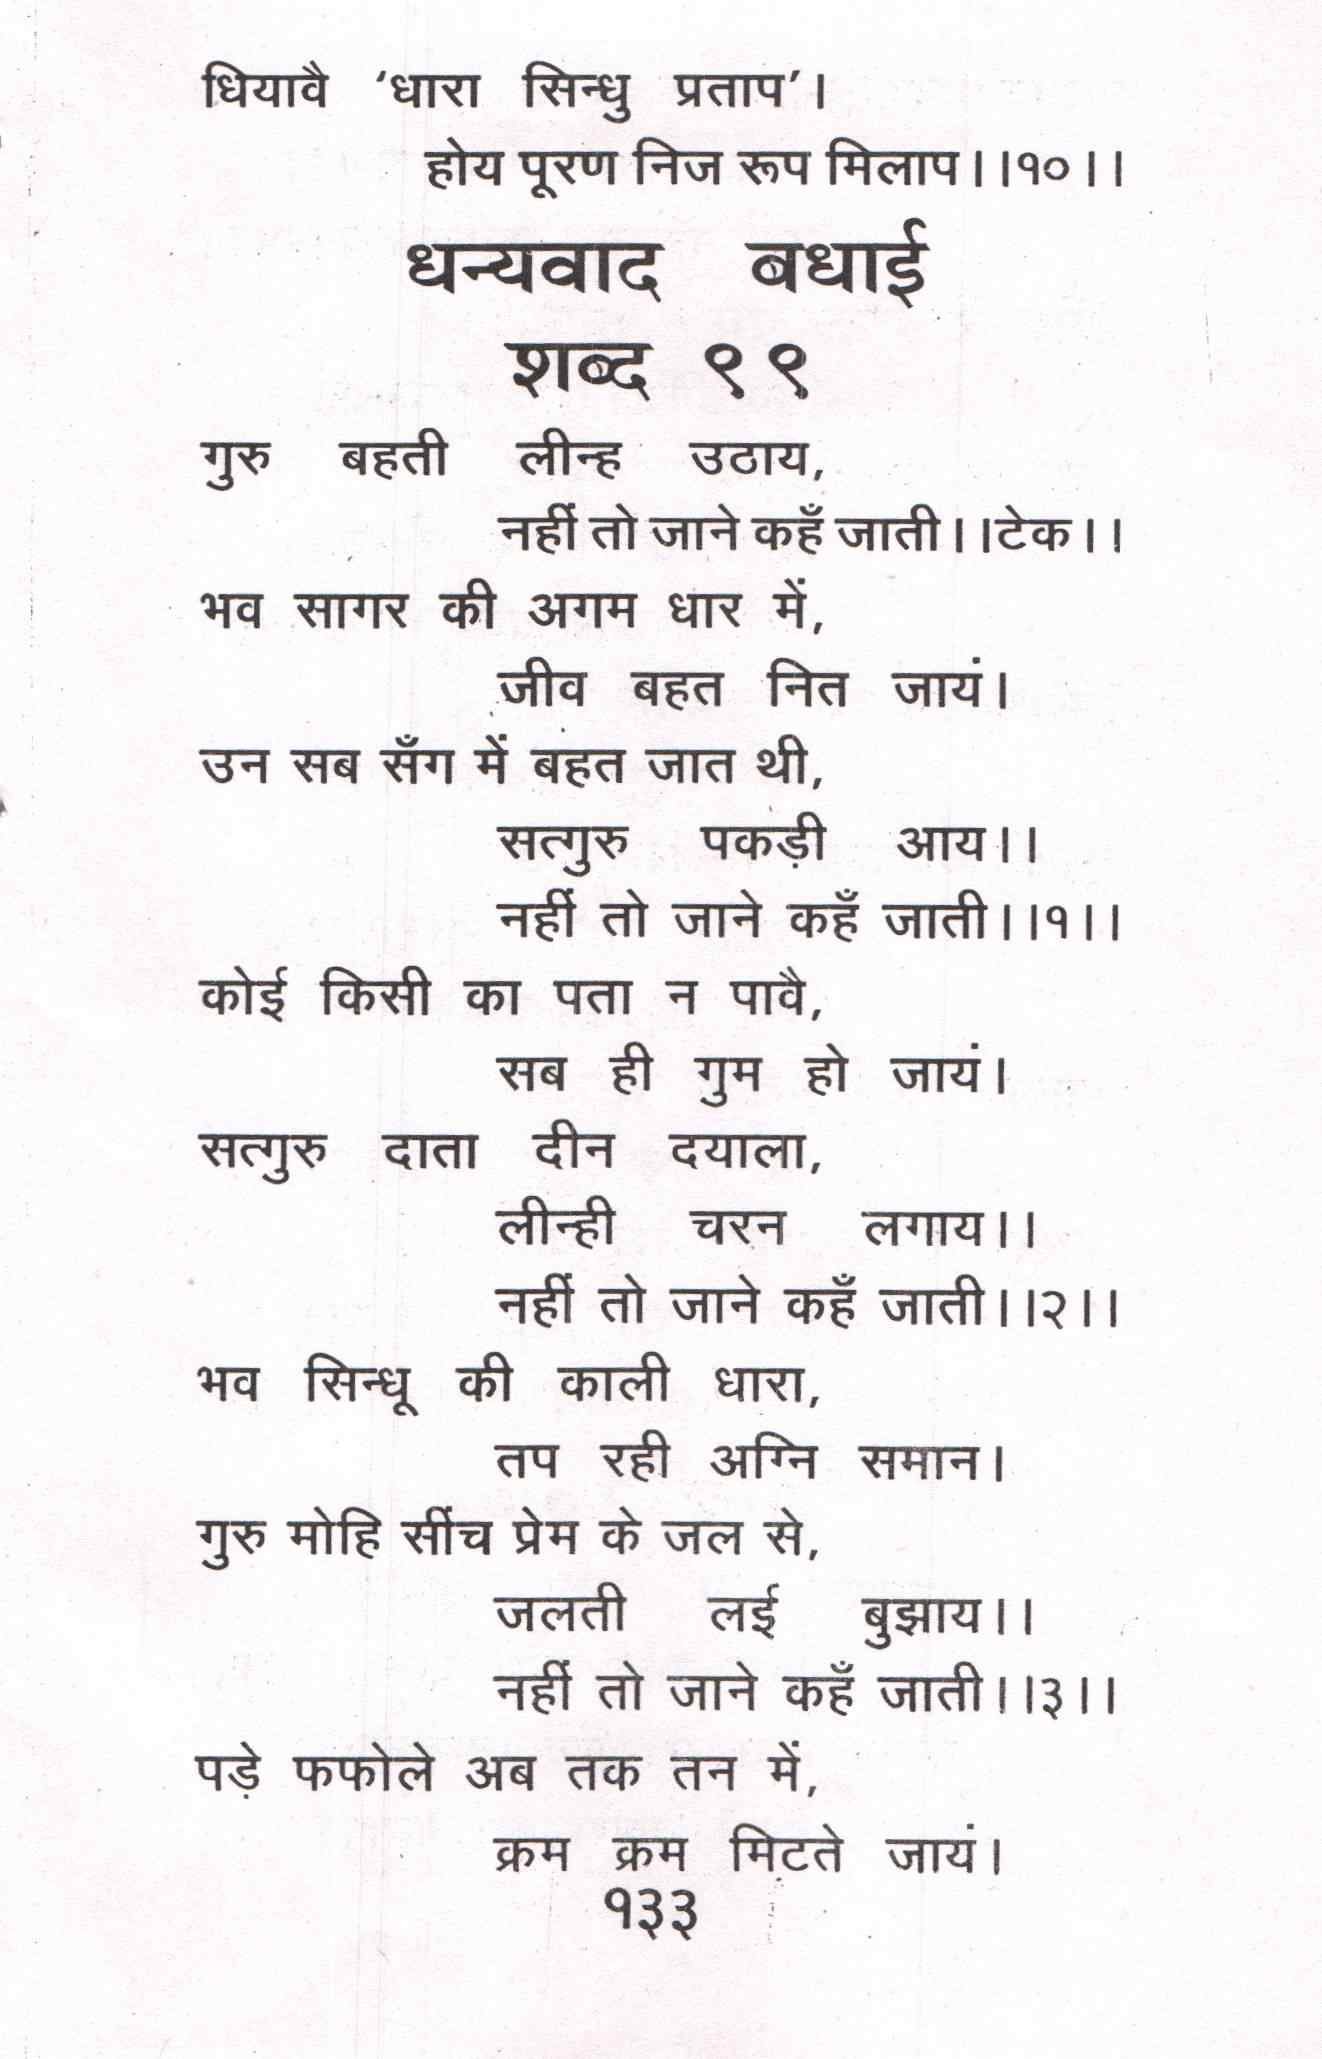 धियावै ‘धारा सिन्धु प्रताप’।
होय पूरण निज रूप मिलाप।।१०।।
धन्यवाद बधाई
शब्द ९९
गुरु बहती लीन्ह उठाय,
नहीं तो जाने कहँ जाती।।टेक।।
भव सागर की अगम धार में,
जीव बहत नित जायं।
उन सब सँग में बहत जात थी,
सत्गुरु पकड़ी आय।।
नहीं तो जाने कहँ जाती।।१।।
कोई किसी का पता न पावै,
सब ही गुम हो जायं।
सत्गुरु दाता दीन दयाला,
लीन्ही चरन लगाय।।
नहीं तो जाने कहँ जाती।।२।।
भव सिन्धू की काली धारा,
तप रही अग्नि समान।
गुरु मोहि सींच प्रेम के जल से,
जलती लई बुझाय।।
नहीं तो जाने कहँ जाती।।३।।
पड़े फफोले अब तक तन में,
क्रम क्रम मिटते जायं।
१३३